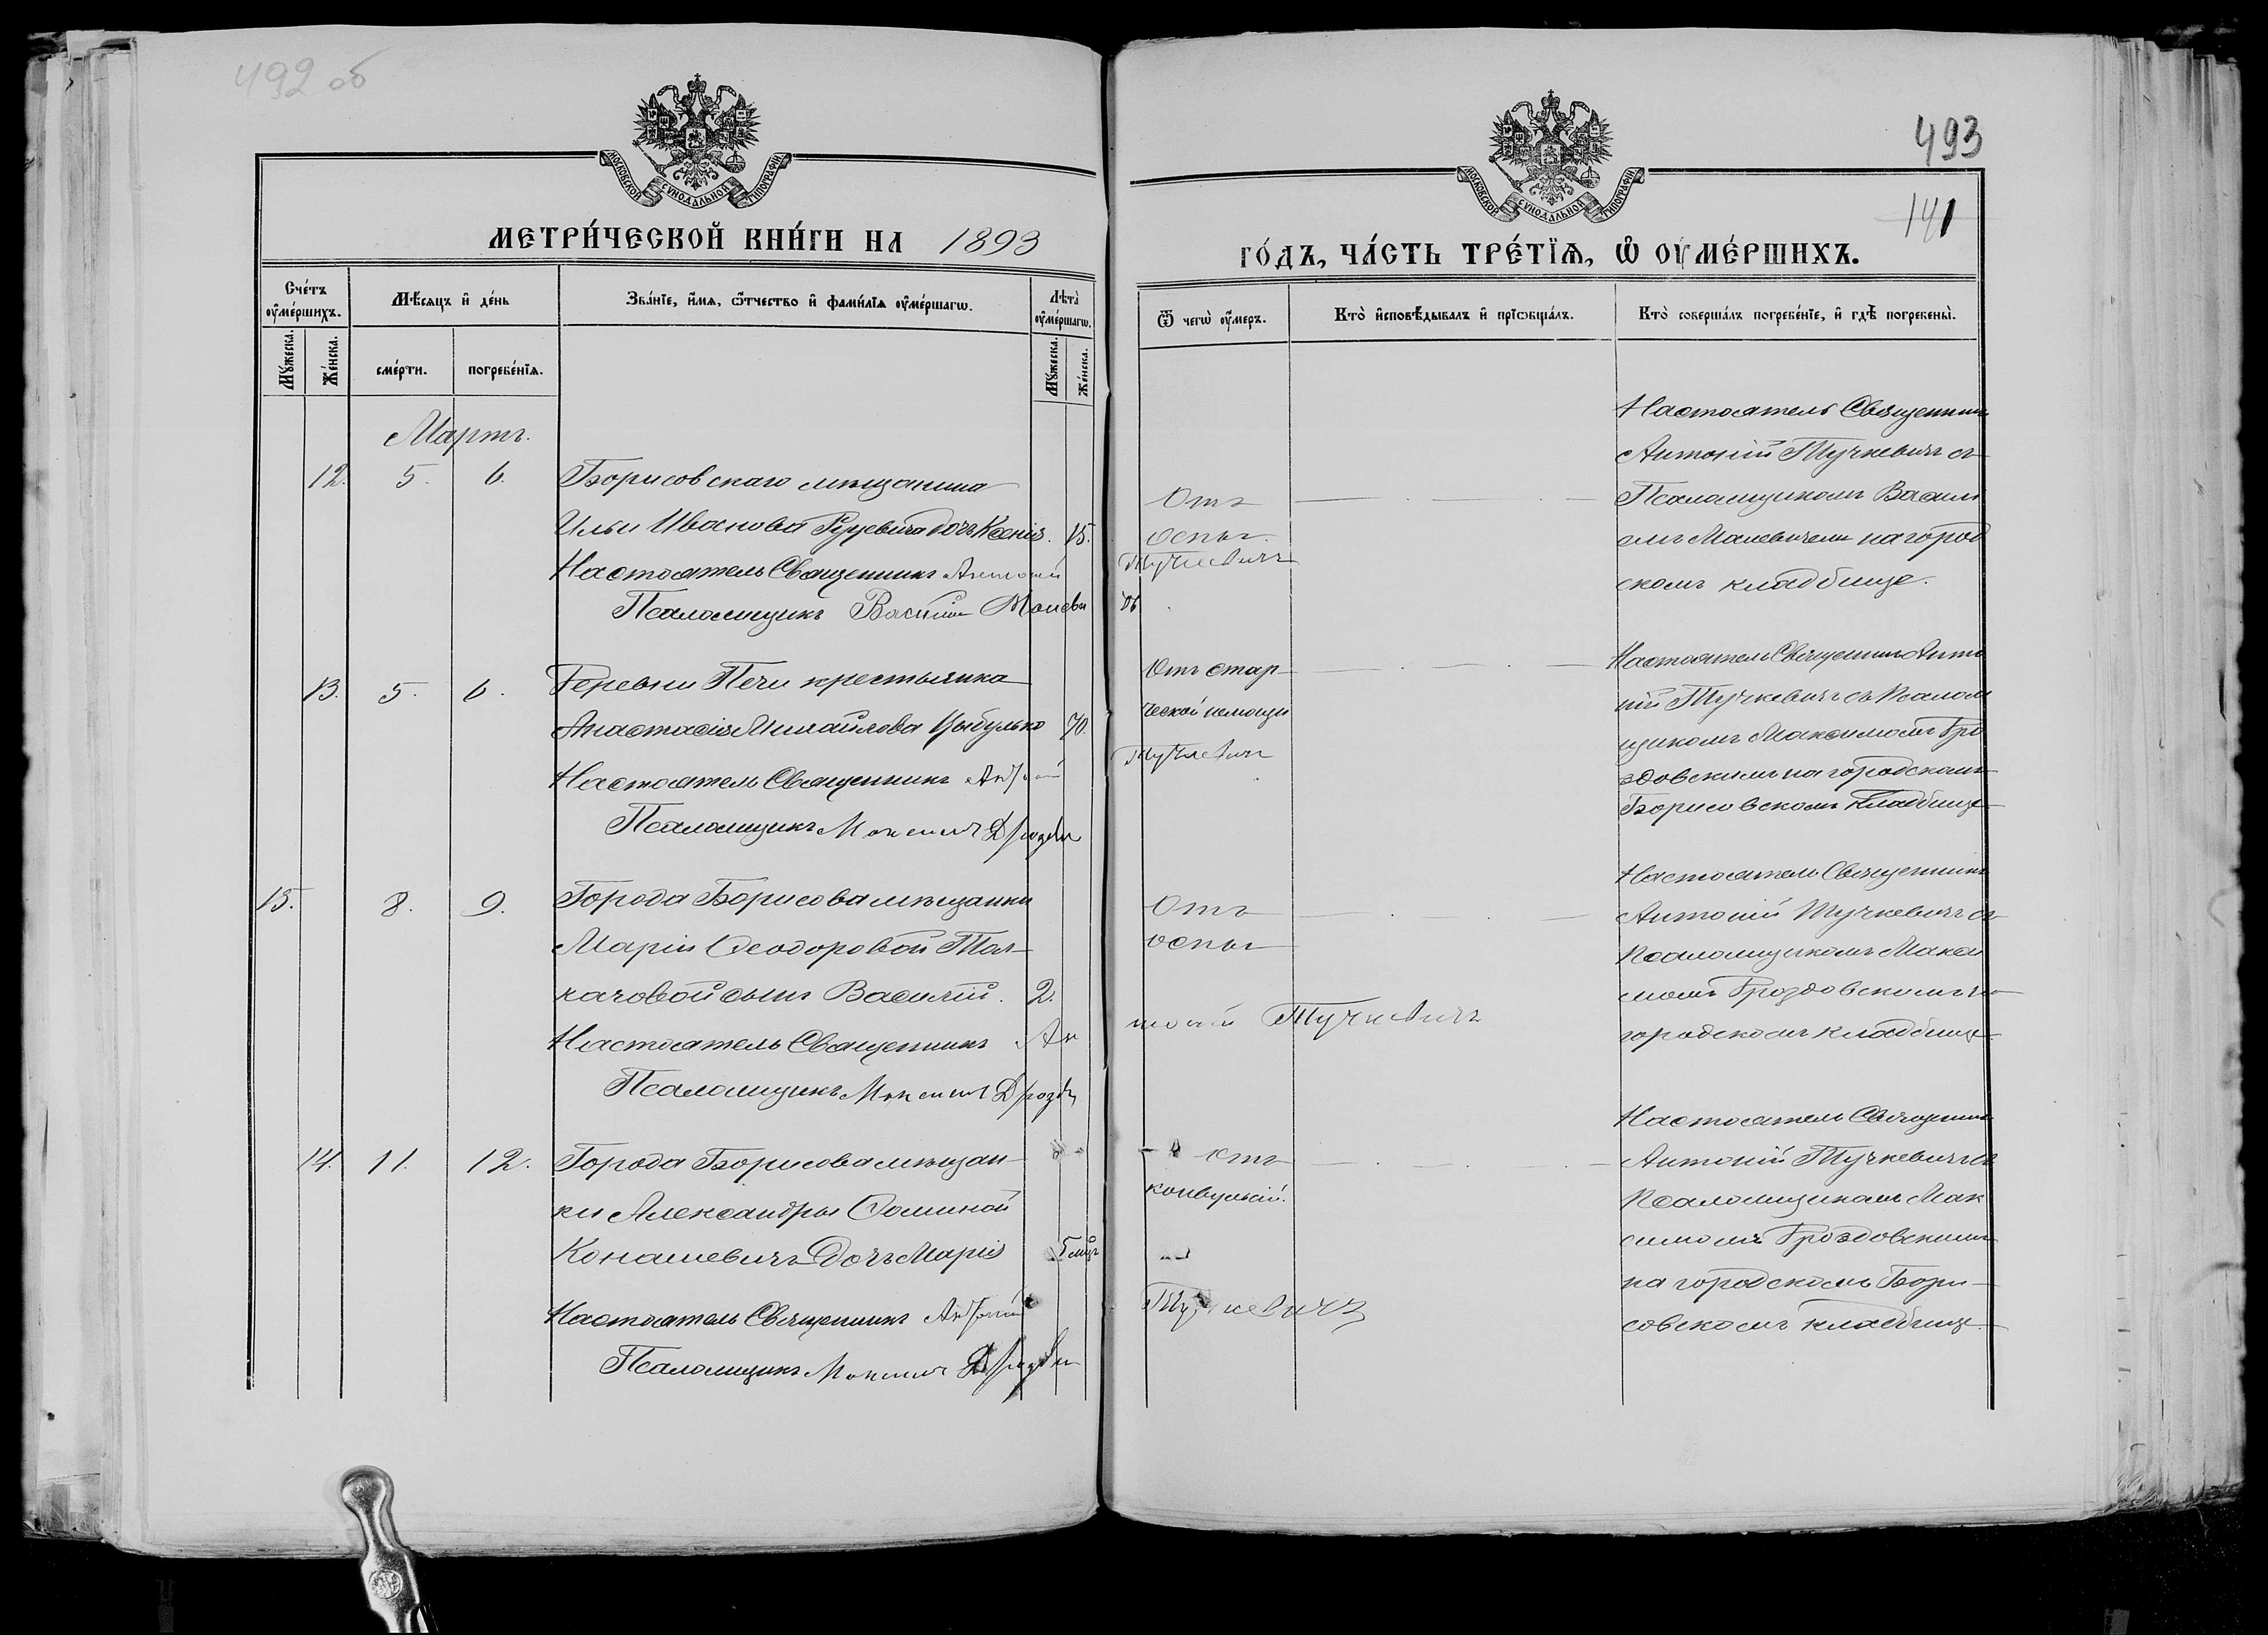 492 об
МОСКОВСКОЙ СУНОДАЛЬНОЙ ТИПОГРАФІИ
МЕТРИ́ЧЕСКОЙ КНИ́ГИ НА 1893
Сче́тъ ᲂу҆ме́ршихъ.
Мѣ́сѧцъ и҆ де́нь
Зва́нїе, и҆́мѧ, ѻ҆́тчество и҆ фами́лїѧ ᲂу҆ме́ршагѡ.
Лѣта̀ ᲂу҆ме́ршагѡ.
Мꙋ́жеска.
Же́нска.
сме́рти.
погребе́нїѧ.
Мꙋ́жеска.
Же́нска.
Мартъ.
12. 5. 6. Борисовскаго мѣщанина
Ильи Иванова дочь Ксенія. 15.
Настоятель Священникъ Антоній
Псаломщикъ Василій Малеви
13. 5. 6. Деревни Печи крестьянка
Анастасія Михайлова Цыбулько 70.
Настоятель Священникъ Антоній
Псаломщикъ Максимъ Дроздов
15. 8. 9. Города Борисова мѣщанки
Маріи Ѳеодоровой Тол-
качовой сынъ Василій. 2.
Настоятель Священникъ Ан
Псаломщикъ Максимъ Дроздо
14. 11. 12. Города Борисова мѣщан-
ки Александры Ѳоминой
Конашевичъ дочь Марія 5 мѣц
Настоятель Священникъ Антоній
Псаломщикъ Максимъ Дроздов
493
141
МОСКОВСКОЙ СУНОДАЛЬНОЙ ТИПОГРАФІИ
ГО́ДЪ, ЧА́СТЬ ТРЕ́ТЇѦ, Ѡ҆ ОУМЕ́РШИХЪ.
Ѿ чегѡ̀ ᲂу҆́меръ.
Кто̀ и҆сповѣ́дывалъ и҆ прїѡбща́лъ.
Кто̀ соверша́лъ погребе́нїе, и҆ гдѣ̀ погребены̀.
Отъ
оспы.
Тучкевичъ
чъ
Настоятель Священникъ
Антоній Тучкевичъ съ
Псаломщикомъ Васили
емъ Малевичемъ на город
скомъ кладбище.
Отъ стар-
ческой немощи
Тучкевичъ
Настоятель Священникъ Анто
ній Тучкевичъ съ Псалом
щикомъ Максимомъ Дро
здовскимъ на городскомъ
Борисовскомъ кладбище
Отъ
оспы
тоній Тучкевичъ
Настоятель Священникъ
Антоній Тучкевичъ съ
Псаломщикомъ Макси
момъ Дроздовскимъ на
городскомъ кладбище
Отъ
конвульсій.
Тучкевичъ
Настоятель Священникъ
Антоній Тучкевичъ съ
Псаломщикомъ Мак
симомъ Дроздовскимъ
на городскомъ Бори-
совскомъ кладбище.